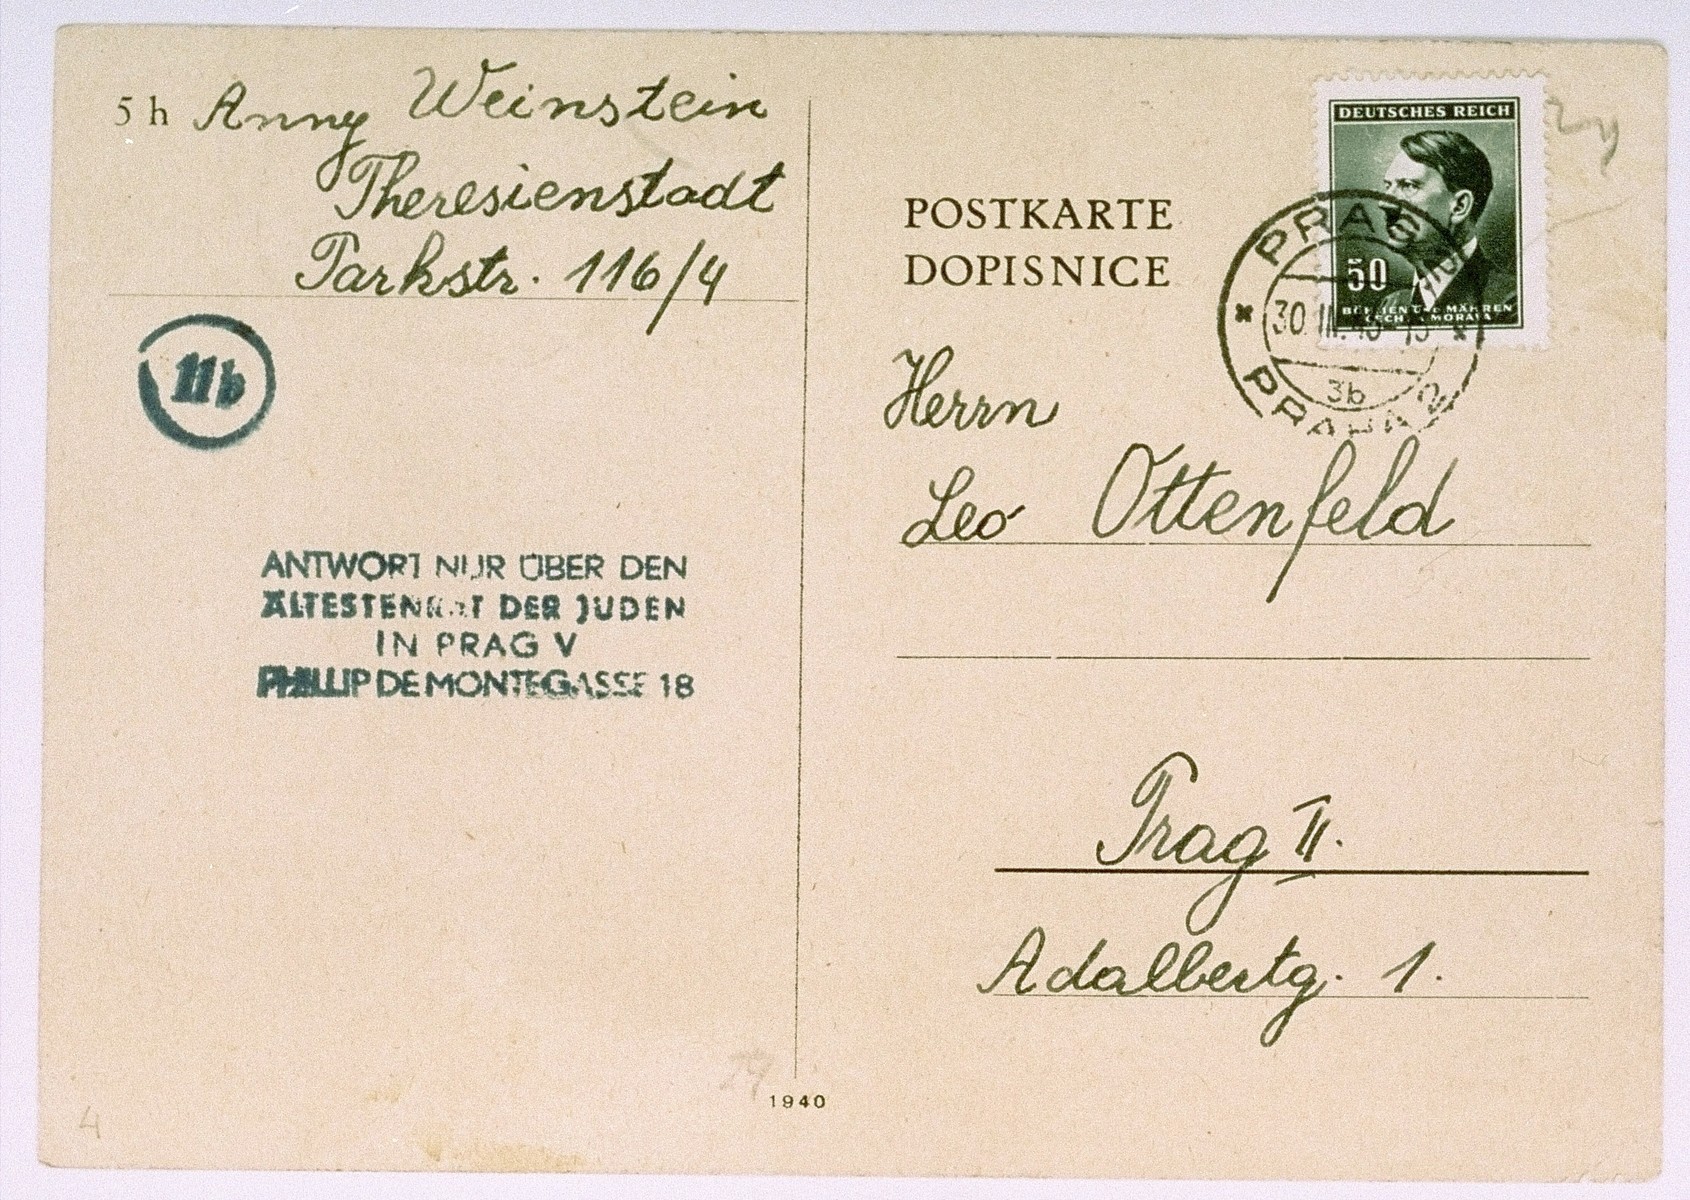 5 h Anny Weinstein
Theresienstadt
Parkstr. 116/4
11b
ANTWORT NUR ÜBER DEN
ÄLTESTENRAT DER JUDEN
IN PRAG V
PHILIP DE MONTEGASSE 18
POSTKARTE
DOPISNICE
DEUTSCHES REICH
50
BÖHMEN UND MÄHREN
ČECHY A MORAVA
PRAG
30.III.43-15
3b
PRAHA 2
Herrn
Leo Ottenfeld
Prag II.
Adalbertg. 1.
1940
4